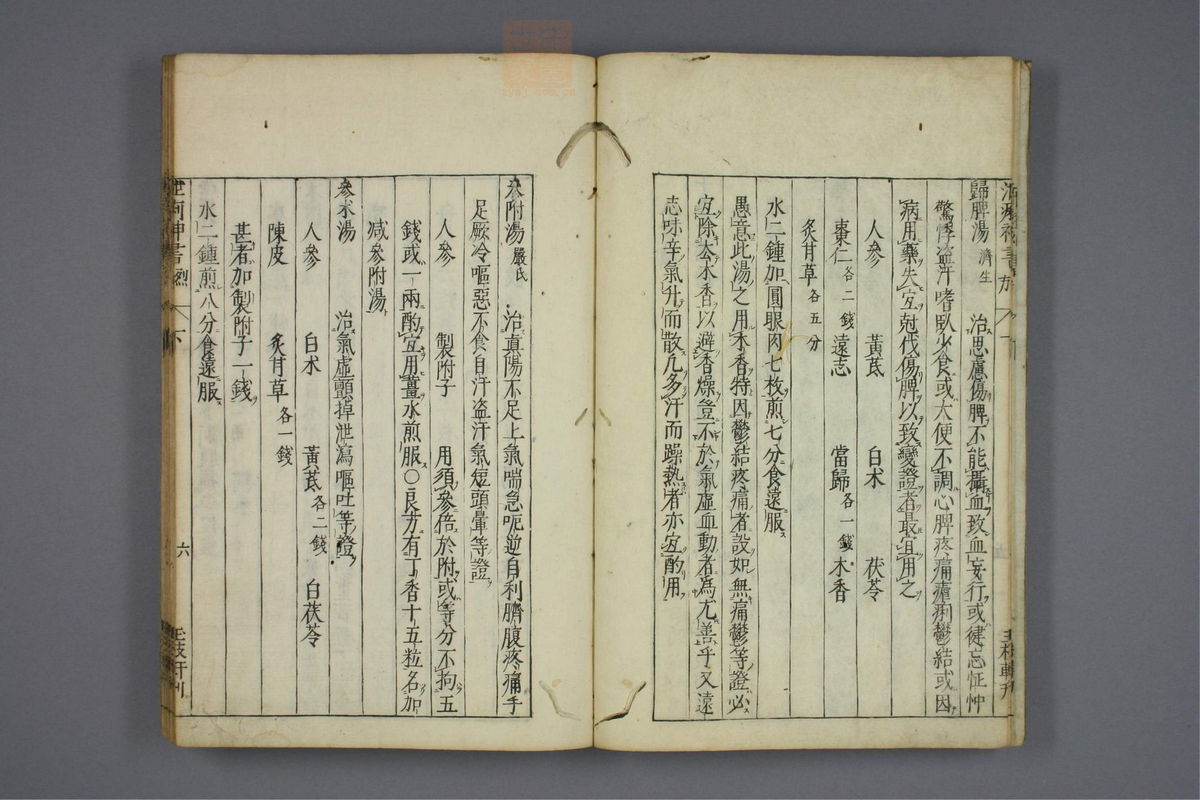 歸脾湯 濟生 治思慮傷脾不能攝血致血妄行或健忘怔忡
驚悸盜汗嗜臥少食或大便不調心脾疼痛瘧痢鬱結或因
病用藥失宜尅伐傷脾以致變證者最宜用之
人參 黃芪 白朮 茯苓
棗仁各二錢 遠志 當歸各一錢 木香
炙甘草各五分
水二鍾加圓眼肉七枚煎七分食遠服
愚意此湯之用木香特因鬱結疼痛者設如無痛鬱等證必
宜除去木香以避香燥豈不於氣虛血動者為尤善乎又遠
志味辛氣升而散凡多汗而躁熱者亦宜酌用
參附湯 嚴氏 治真陽不足上氣喘急呃逆自利臍腹疼痛手
足厥冷嘔惡不食自汗盜汗氣短頭暈等證
人參 製附子 用須參倍於附或等分不拘五
錢或一兩酌宜用薑水煎服○良方有丁香十五粒名加
減參附湯
參朮湯 治氣虛顫掉泄瀉嘔吐等證
人參 白朮 黃芪各二錢 白茯苓
陳皮 炙甘草各一錢
甚者加製附子一錢
水二鍾煎八分食遠服
六